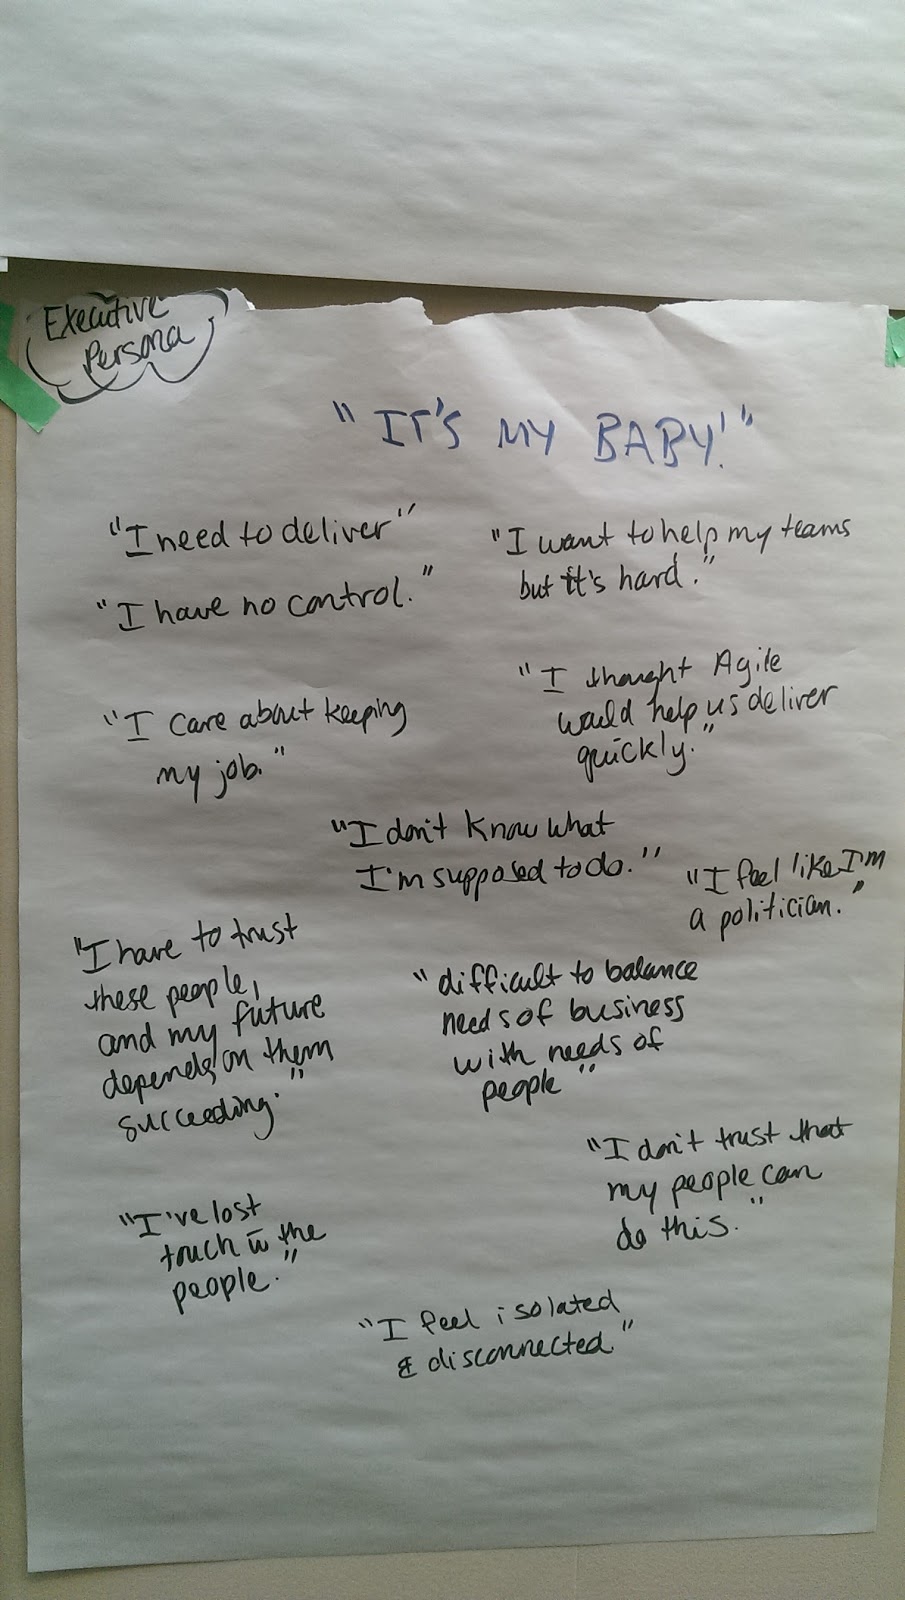 Executive
Persona
"IT'S MY BABY!"
"I need to deliver"
"I have no control."
"I want to help my teams
but it's hard."
"I care about keeping
my job."
"I thought Agile
would help us deliver
quickly."
"I don't know what
I'm supposed to do."
"I feel like I'm
a politician."
"I have to trust
these people,
and my future
depends on them
succeeding."
"difficult to balance
needs of business
with needs of
people"
"I don't trust that
my people can
do this."
"I've lost
touch w̅ the
people."
"I feel isolated
& disconnected"